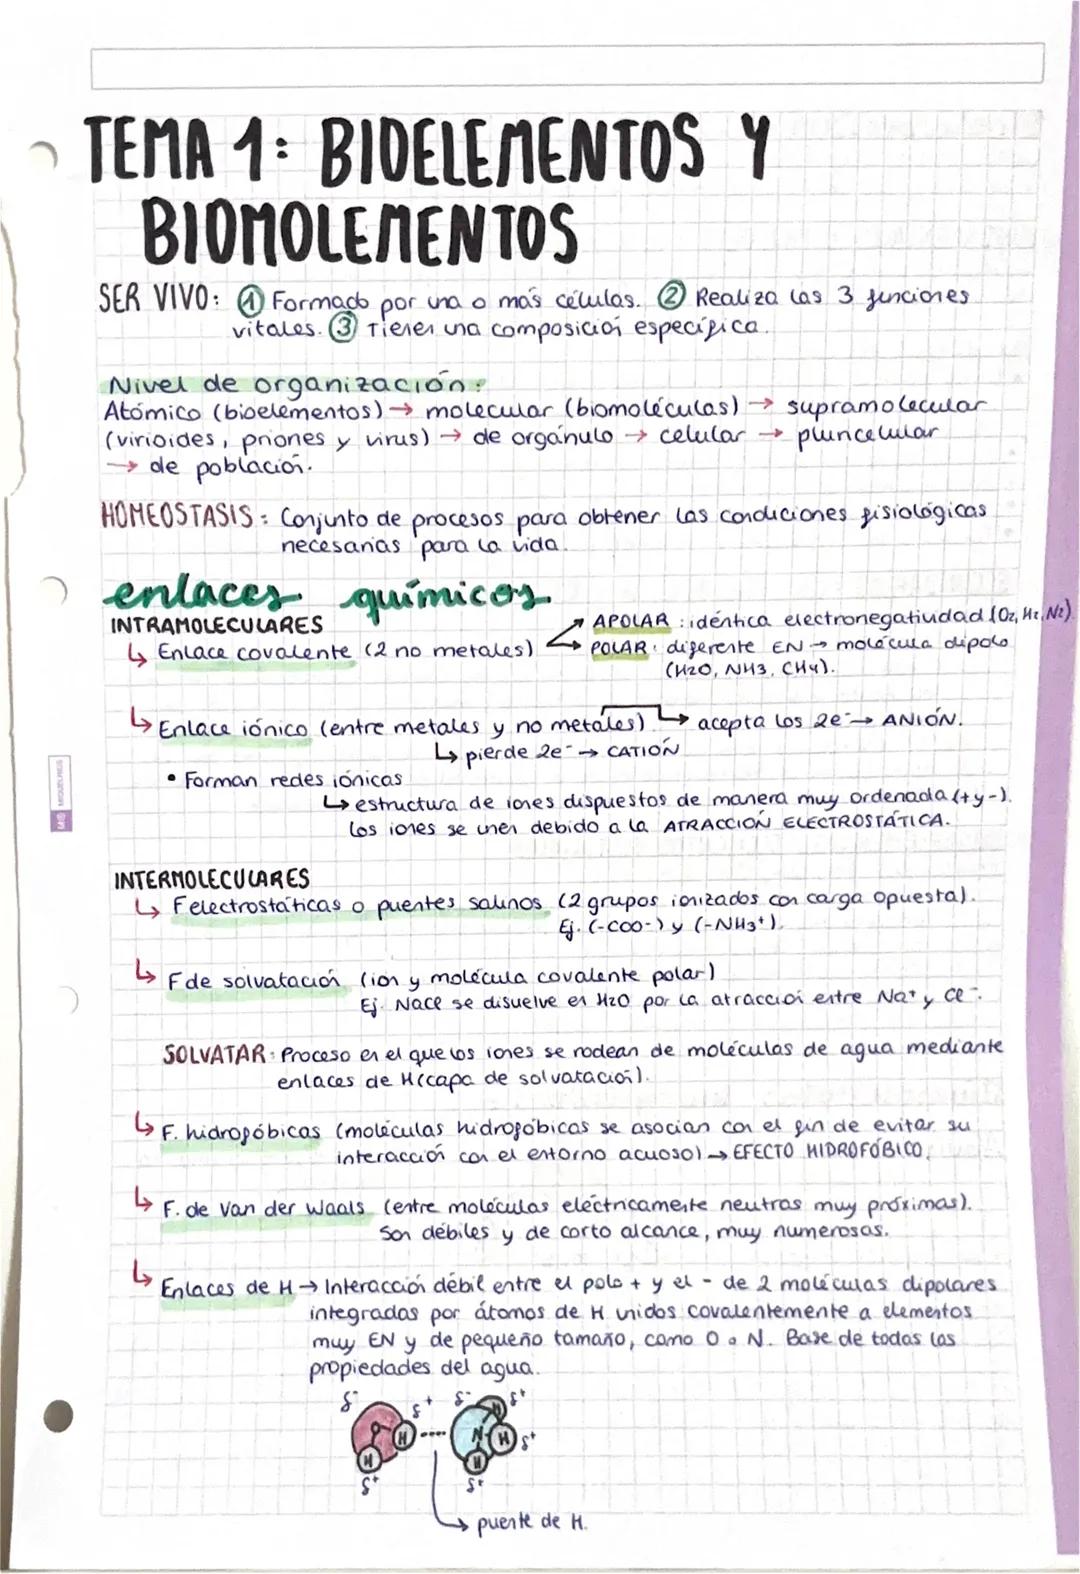 TEMA 1: BIOELEMENTOS Y
BIOMOLEMENTOS
SER VIVO: ① Formado por una o más células. ② Realiza las 3 funciones
vitales. ③ Tienen una composición específica.
Nivel de organización:
Atómico (bioelementos) → molecular (biomoléculas) → supramolecular
(virioides, priones y virus) → de orgánulo → celular → pluricelular
→ de población.
HOMEOSTASIS: Conjunto de procesos para obtener las condiciones fisiológicas
necesarias para la vida.
enlaces químicos.
INTRAMOLECULARES
↳ Enlace covalente (2 no metales)
→ APOLAR: idéntica electronegatividad (O2, H2, N2).
→ POLAR: diferente EN → molécula dipolo
(H2O, NH3, CH4).
↳ Enlace iónico (entre metales y no metales) ↳ acepta los 2e⁻ → ANIÓN.
↳ pierde 2e⁻ → CATIÓN
• Forman redes iónicas
↳ estructura de iones dispuestos de manera muy ordenada (+ y -).
Los iones se unen debido a la ATRACCIÓN ELECTROSTÁTICA.
MIQUELRIUS
INTERMOLECULARES
↳ F electrostáticas o puentes salinos (2 grupos ionizados con carga opuesta).
Ej. (-COO-) y (-NH3⁺).
↳ F de solvatación (ion y molécula covalente polar)
Ej. NaCl se disuelve en H2O por la atracción entre Na⁺ y Cl⁻.
SOLVATAR: Proceso en el que los iones se rodean de moléculas de agua mediante
enlaces de H (capa de solvatación).
↳ F. hidrofóbicas (moléculas hidrofóbicas se asocian con el fin de evitar su
interacción con el entorno acuoso) → EFECTO HIDROFÓBICO.
↳ F. de Van der Waals (entre moléculas eléctricamente neutras muy próximas).
Son débiles y de corto alcance, muy numerosas.
↳ Enlaces de H → Interacción débil entre el polo + y el - de 2 moléculas dipolares
integradas por átomos de H unidos covalentemente a elementos
muy EN y de pequeño tamaño, como O o N. Base de todas las
propiedades del agua.
δ⁻ δ⁺ δ⁻ δ⁺
O H H
N H δ⁺
H H
δ⁺ δ⁺
↳ puente de H.